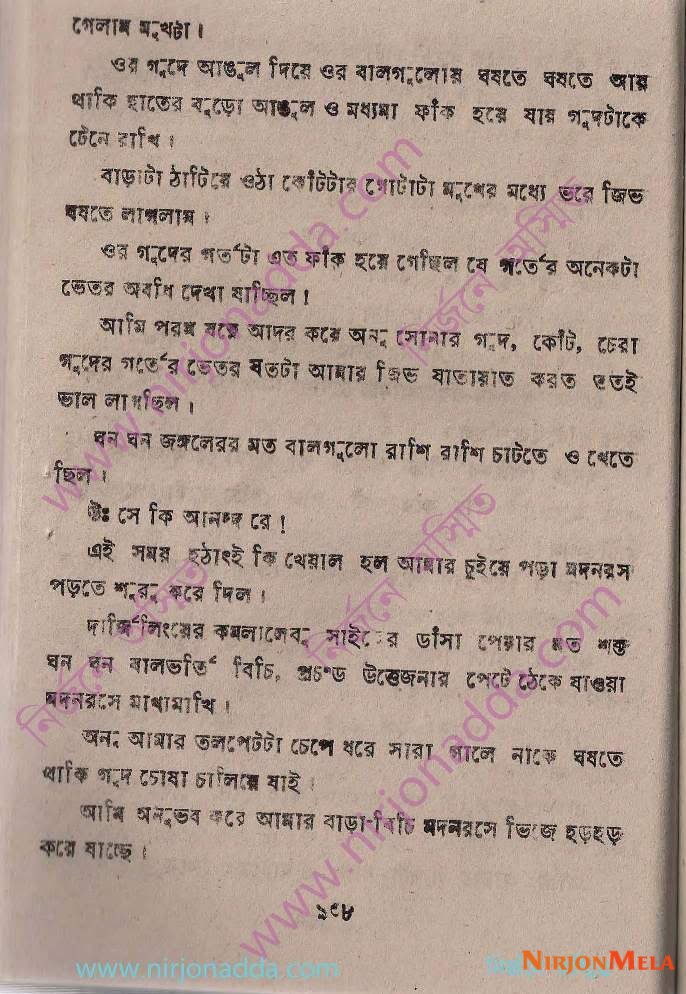 গেলাম মুখটা।
ওর গুদে আঙুল দিয়ে ওর বালগুলোয় ঘষতে ঘষতে আর
থাকি হাতের বুড়ো আঙুল ও মধ্যমা ফাঁক হয়ে যায় গুদটাকে
টেনে রাখি।
বাড়াটা ঠাটিয়ে ওঠা কোঁটটার গোটাটা মুখের মধ্যে ভরে জিভ
ঘষতে লাগলাম।
ওর গুদের গর্তটা এত ফাঁক হয়ে গেছিল যে গর্তের অনেকটা
ভেতর অবধি দেখা যাচ্ছিল!
আমি পরম যত্নে আদর করে অনু সোনার গুদ, কোঁট, চেরা
গুদের গর্তের ভেতর যতটা আমার জিভ যাতায়াত করত ততই
ভাল লাগছিল।
ঘন ঘন জঙ্গলেরর মত বালগুলো রাশি রাশি চাটতে ও খেতে
ছিল।
উঃ সে কি আনন্দ রে!
এই সময় হঠাৎই কি খেয়াল হল আমার চুইয়ে পড়া মদনরস
পড়তে শুরু করে দিল।
দার্জিলিংয়ের কমলালেবু সাইজের ডাঁসা পেয়ারার মত শক্ত
ঘন ঘন বালভর্তি বিচি, প্রচণ্ড উত্তেজনার পেটে ঠেকে যাওয়া
মদনরসে মাখামাখি।
অনু আমার তলপেটটা চেপে ধরে সারা গালে নাকে ঘষতে
থাকি গুদ চোষা চালিয়ে যাই।
আমি অনুভব করে আমার বাড়া-বিচি মদনরসে ভিজে হড়হড়
করে যাচ্ছে।
১৫৮
www.nirjonadda.com
www.nirjonadda.com
www.nirjonadda.com
নির্জনে অস্মিত
নির্জনে অস্মিত
নির্জনে অস্মিত
NIRJONMELA